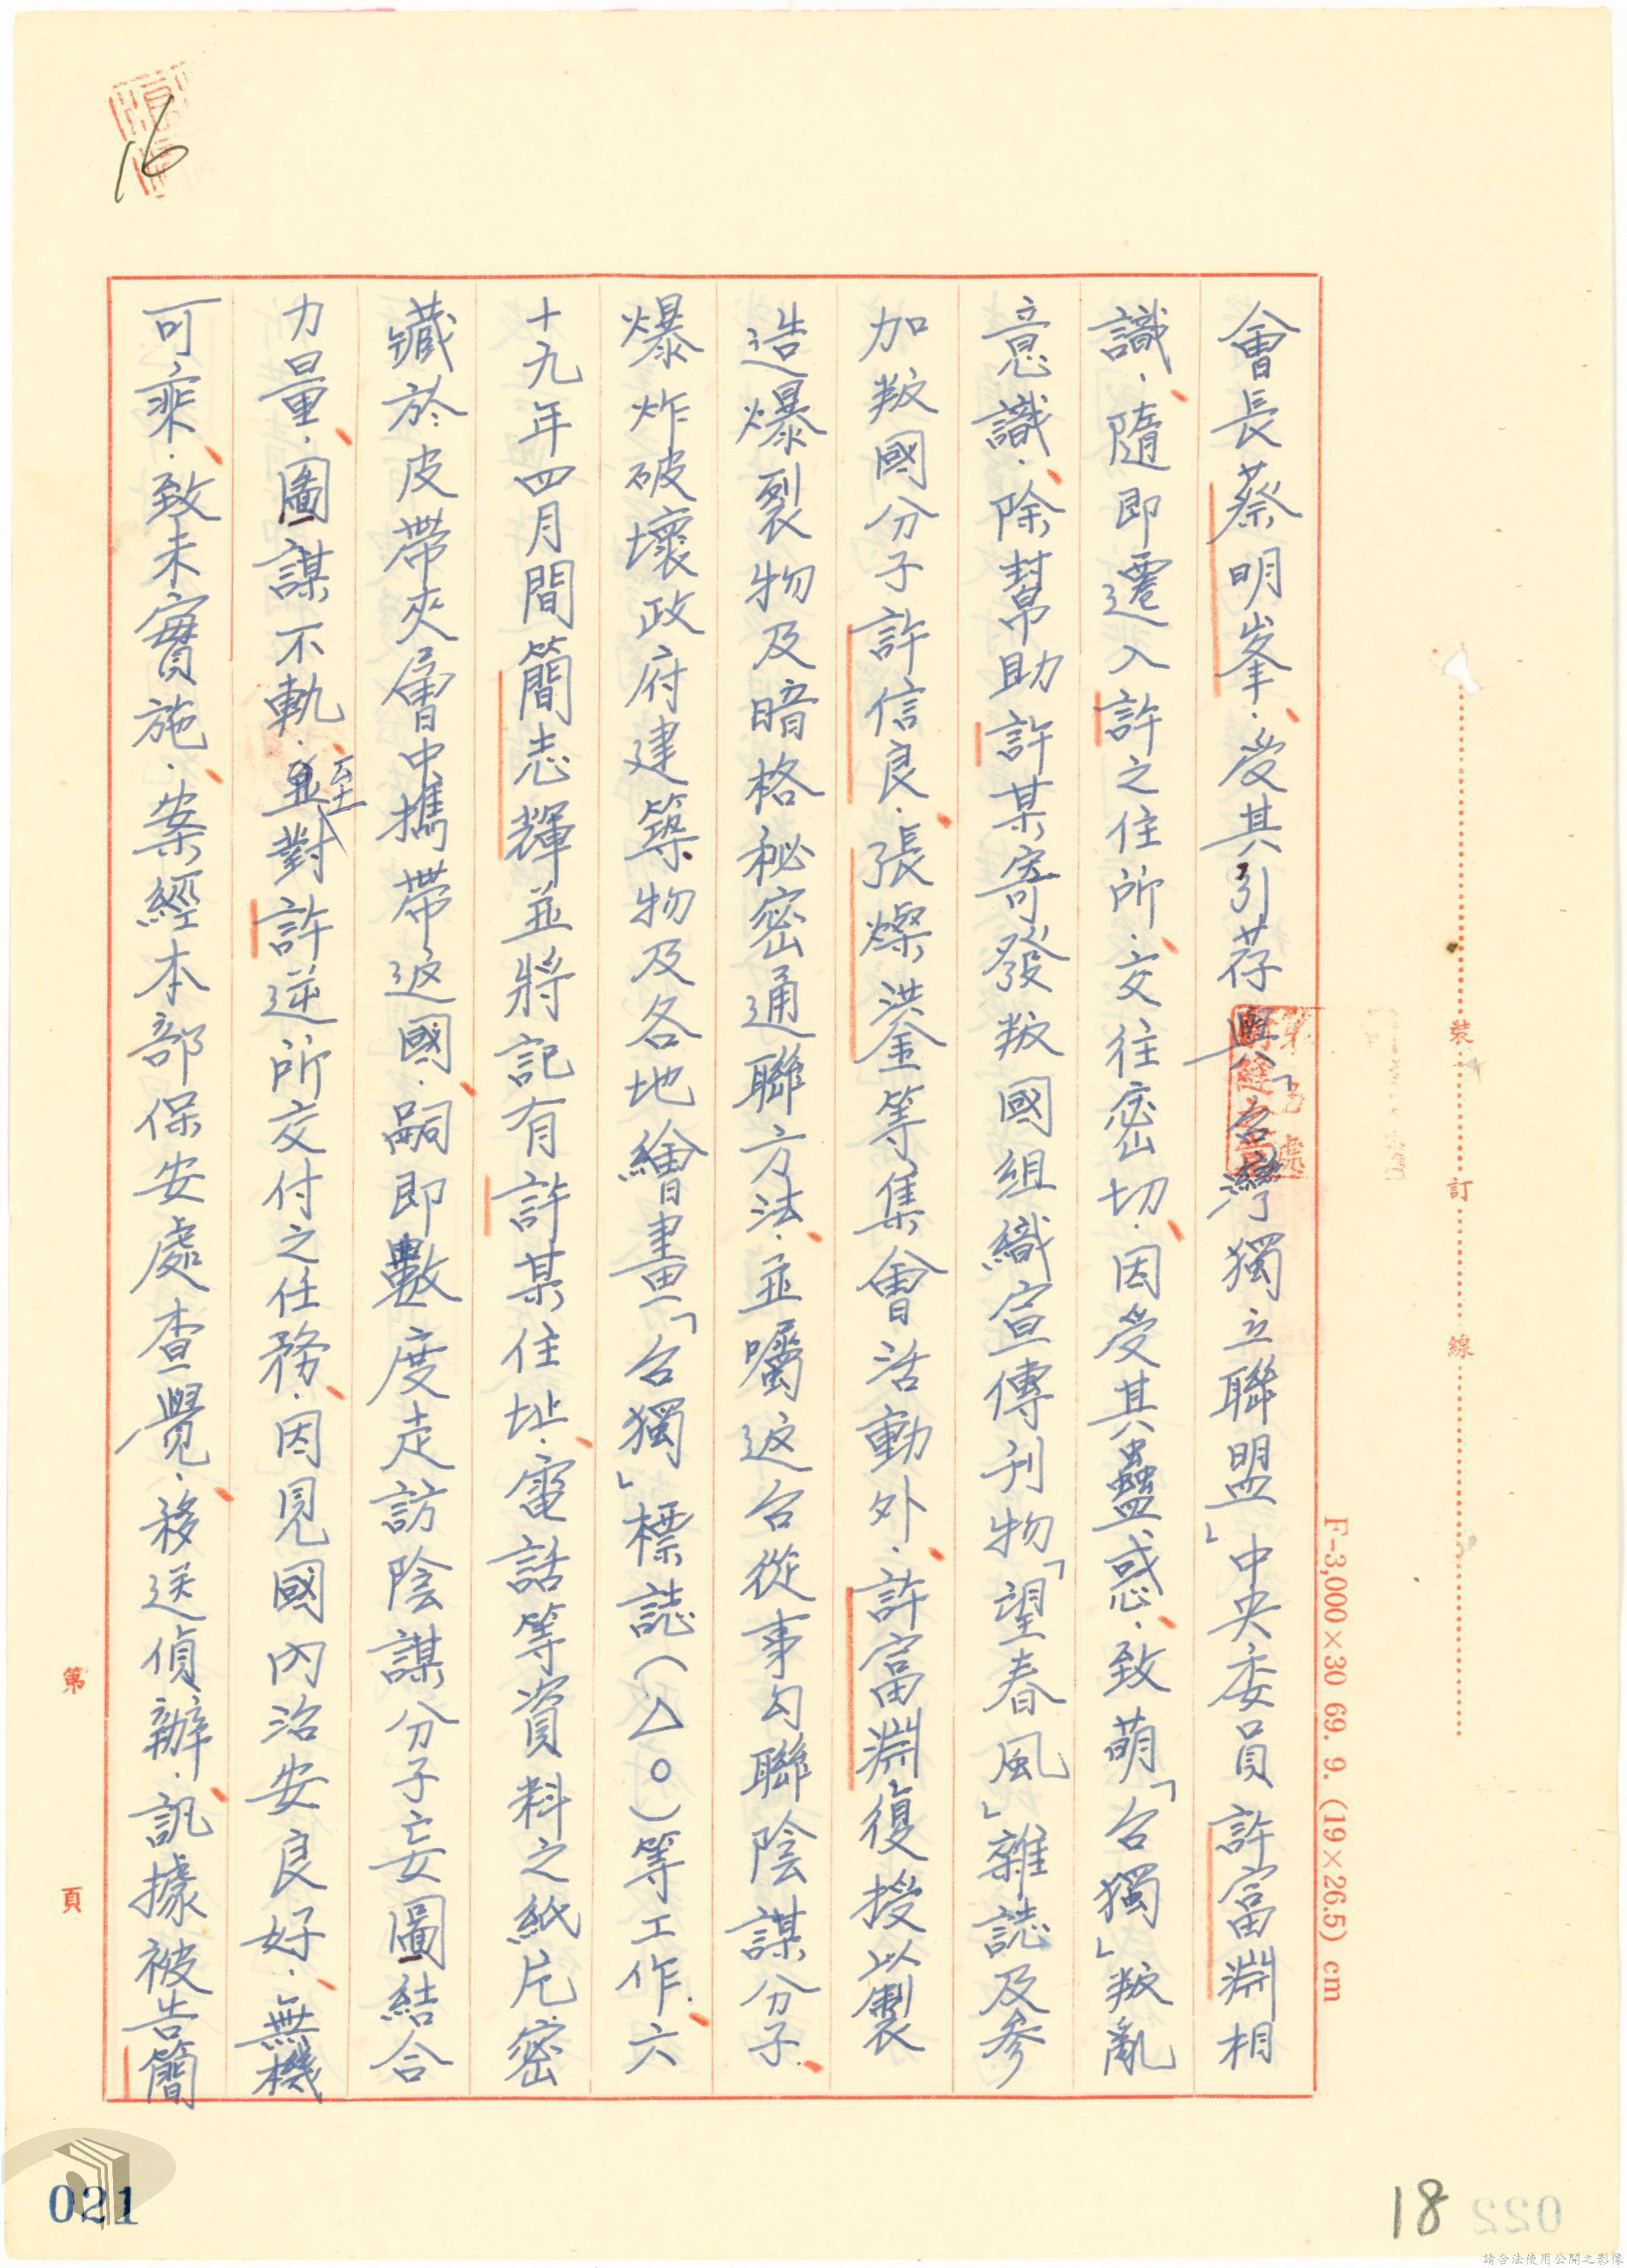 會長蔡明峯，受其引荐與「台灣獨立聯盟」中央委員許富淵相
識，隨即遷入許之住所，交往密切，因受其蠱惑，致萌「台獨」叛亂
意識，除幫助許某寄發叛國組織宣傳刊物「望春風」雜誌及參
加叛國分子許信良，張燦鍙等集會活動外，許富淵復授以製
造爆裂物及暗格秘密通聯方法，並囑返台從事勾聯陰謀分子，
爆炸破壞政府建築物及各地繪畫「台獨」標誌（△○）等工作，六
十九年四月間簡志輝並將記有許某住址，電話等資料之紙片密
藏於皮帶夾層中攜帶返國，嗣即數度走訪陰謀分子妄圖結合
力量，圖謀不軌，並對許逆所交付之任務，因見國內治安良好，無機
至
可乘，致未實施，案經本部保安處查覺，移送偵辦，訊據被告簡
16
裝
訂
線
F-3,000×30 69. 9. (19×26.5) cm
第
頁
021
18
022
請合法使用公開之影像